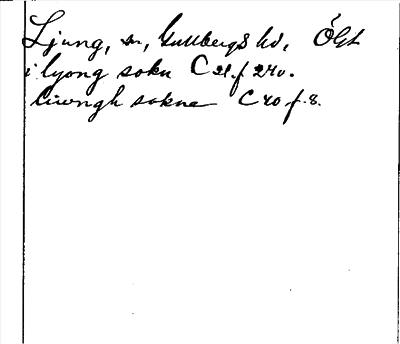 Ljung, sn, Gullbergs hd, Ögt
i lyong sokn C 21.f 240.
liwngh sokne C 40 f. 8.